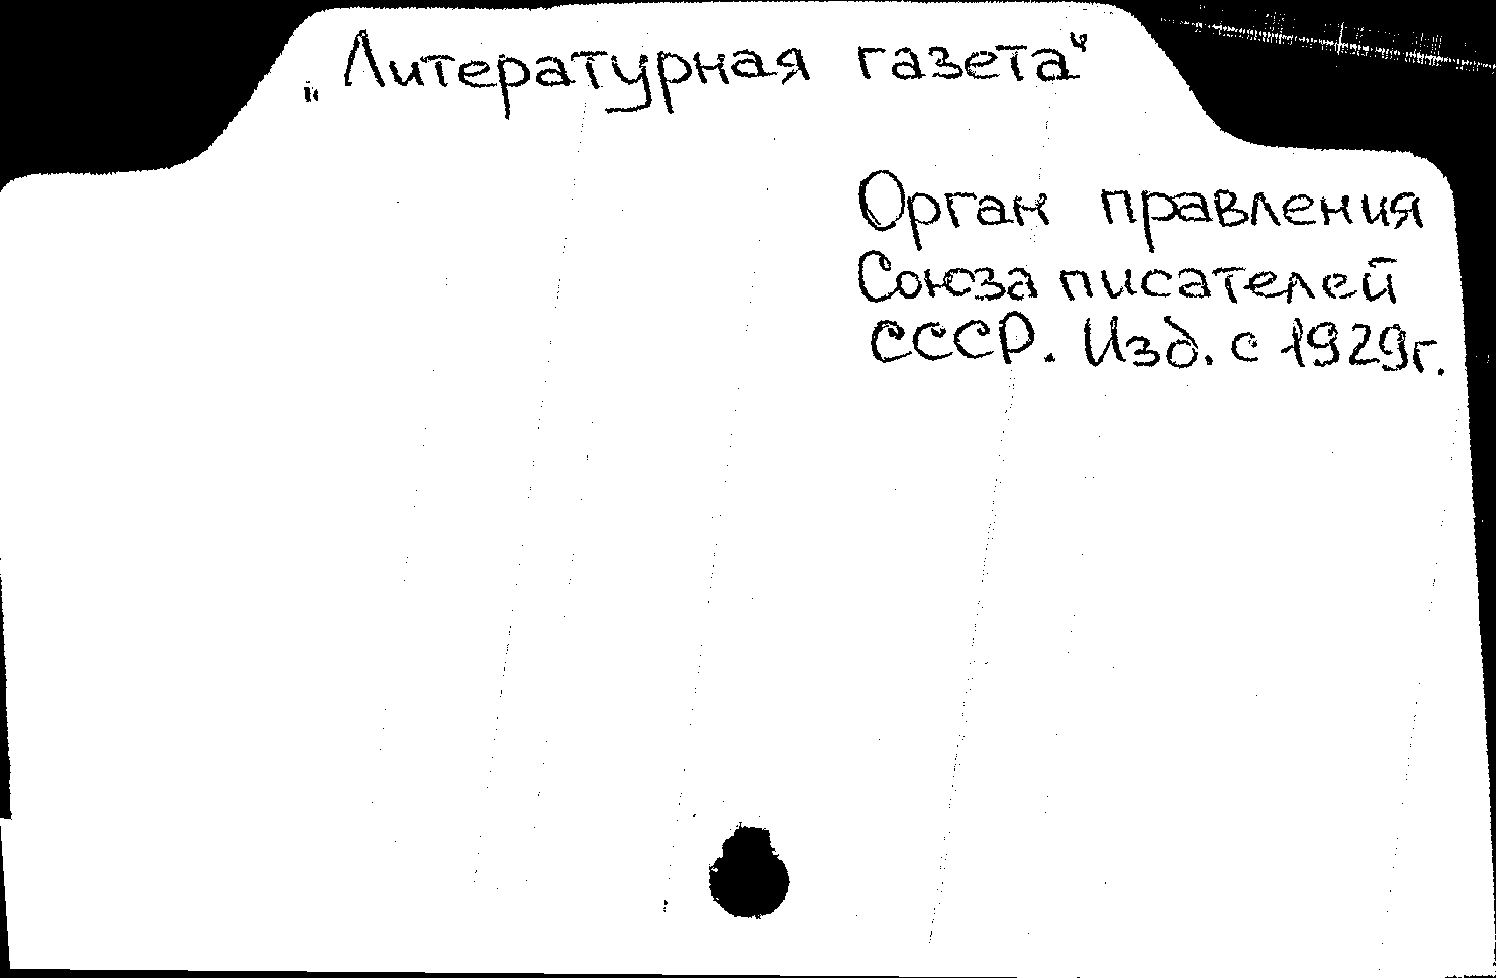 „Литературная газета“
Орган правления
Союза писателей
СССР. Изд. с 1929г.